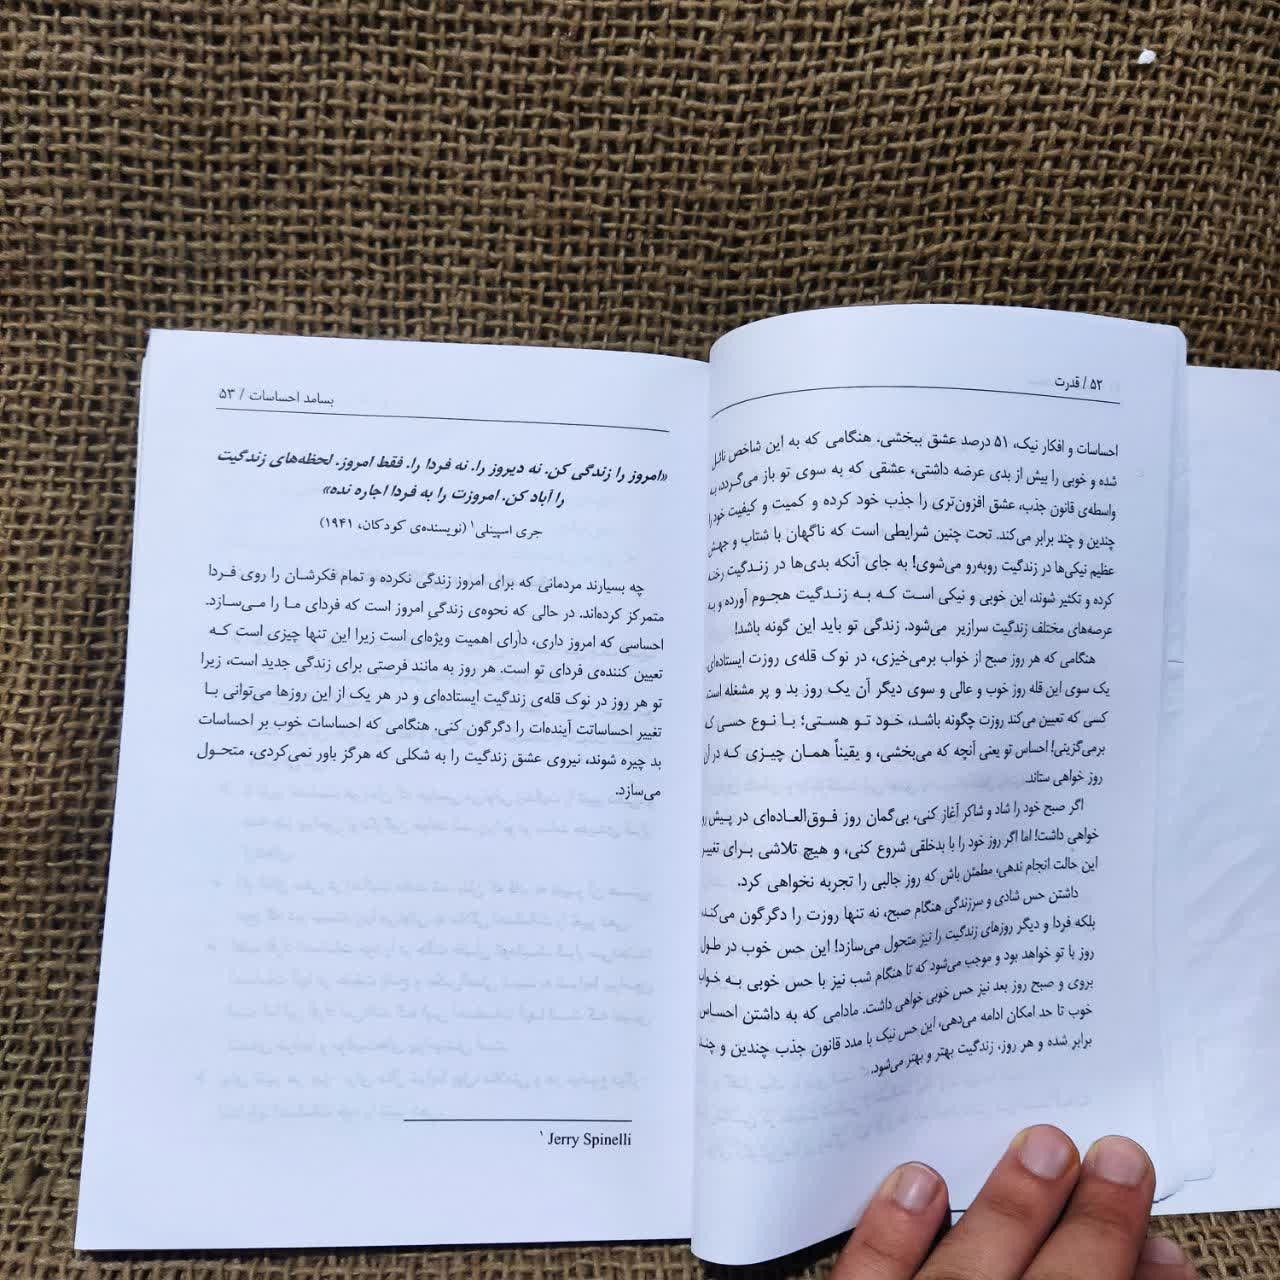 ۵۲ / قدرت
احساسات و افکار نیک، ۵۱ درصد عشق ببخشی. هنگامی که به این شاخص نائل
شده و خوبی را بیش از بدی عرضه داشتی، عشقی که به سوی تو باز می‌گردد، به
واسطه‌ی قانون جذب، عشق افزون‌تری را جذب خود کرده و کمیت و کیفیت خود را
چندین و چند برابر می‌کند. تحت چنین شرایطی است که ناگهان با شتاب و جهش
عظیم نیکی‌ها در زندگیت روبه‌رو می‌شوی! به جای آنکه بدی‌ها در زندگیت رخنه
کرده و تکثیر شوند، این خوبی و نیکی است که به زندگیت هجوم آورده و به
عرصه‌های مختلف زندگیت سرازیر می‌شود. زندگی تو باید این گونه باشد!
هنگامی که هر روز صبح از خواب برمی‌خیزی، در نوک قله‌ی روزت ایستاده‌ای.
یک سوی این قله روز خوب و عالی و سوی دیگر آن یک روز بد و پر مشغله است.
کسی که تعیین می‌کند روزت چگونه باشد، خود تو هستی؛ با نوع حسی ک
برمی‌گزینی! احساس تو یعنی آنچه که می‌بخشی، و یقیناً همان چیزی که در آن
روز خواهی ستاند.
اگر صبح خود را شاد و شاکر آغاز کنی، بی‌گمان روز فوق‌العاده‌ای در پیش رو
خواهی داشت! اما اگر روز خود را با بدخلقی شروع کنی، و هیچ تلاشی برای تغییر
این حالت انجام ندهی، مطمئن باش که روز جالبی را تجربه نخواهی کرد.
داشتن حس شادی و سرزندگی هنگام صبح، نه تنها روزت را دگرگون می‌کند،
بلکه فردا و دیگر روزهای زندگیت را نیز متحول می‌سازد! این حس خوب در طول
روز با تو خواهد بود و موجب می‌شود که تا هنگام شب نیز با حس خوبی به خواب
بروی و صبح روز بعد نیز حس خوبی خواهی داشت. مادامی که به داشتن احساس
خوب تا حد امکان ادامه می‌دهی، این حس نیک با مدد قانون جذب چندین و چند
برابر شده و هر روز، زندگیت بهتر و بهتر می‌شود.
بسامد احساسات / ۵۳
«امروز را زندگی کن. نه دیروز را. نه فردا را. فقط امروز. لحظه‌های زندگیت
را آباد کن. امروزت را به فردا اجاره نده»
جری اسپینلی۱ (نویسنده‌ی کودکان، ۱۹۴۱)
چه بسیارند مردمانی که برای امروز زندگی نکرده و تمام فکرشان را روی فردا
متمرکز کرده‌اند. در حالی که نحوه‌ی زندگیِ امروز است که فردای ما را می‌سازد.
احساسی که امروز داری، دارای اهمیت ویژه‌ای است زیرا این تنها چیزی است که
تعیین کننده‌ی فردای تو است. هر روز به مانند فرصتی برای زندگی جدید است، زیرا
تو هر روز در نوک قله‌ی زندگیت ایستاده‌ای و در هر یک از این روزها می‌توانی با
تغییر احساساتت آینده‌ات را دگرگون کنی. هنگامی که احساسات خوب بر احساسات
بد چیره شوند، نیروی عشق زندگیت را به شکلی که هرگز باور نمی‌کردی، متحول
می‌سازد.
۱ Jerry Spinelli